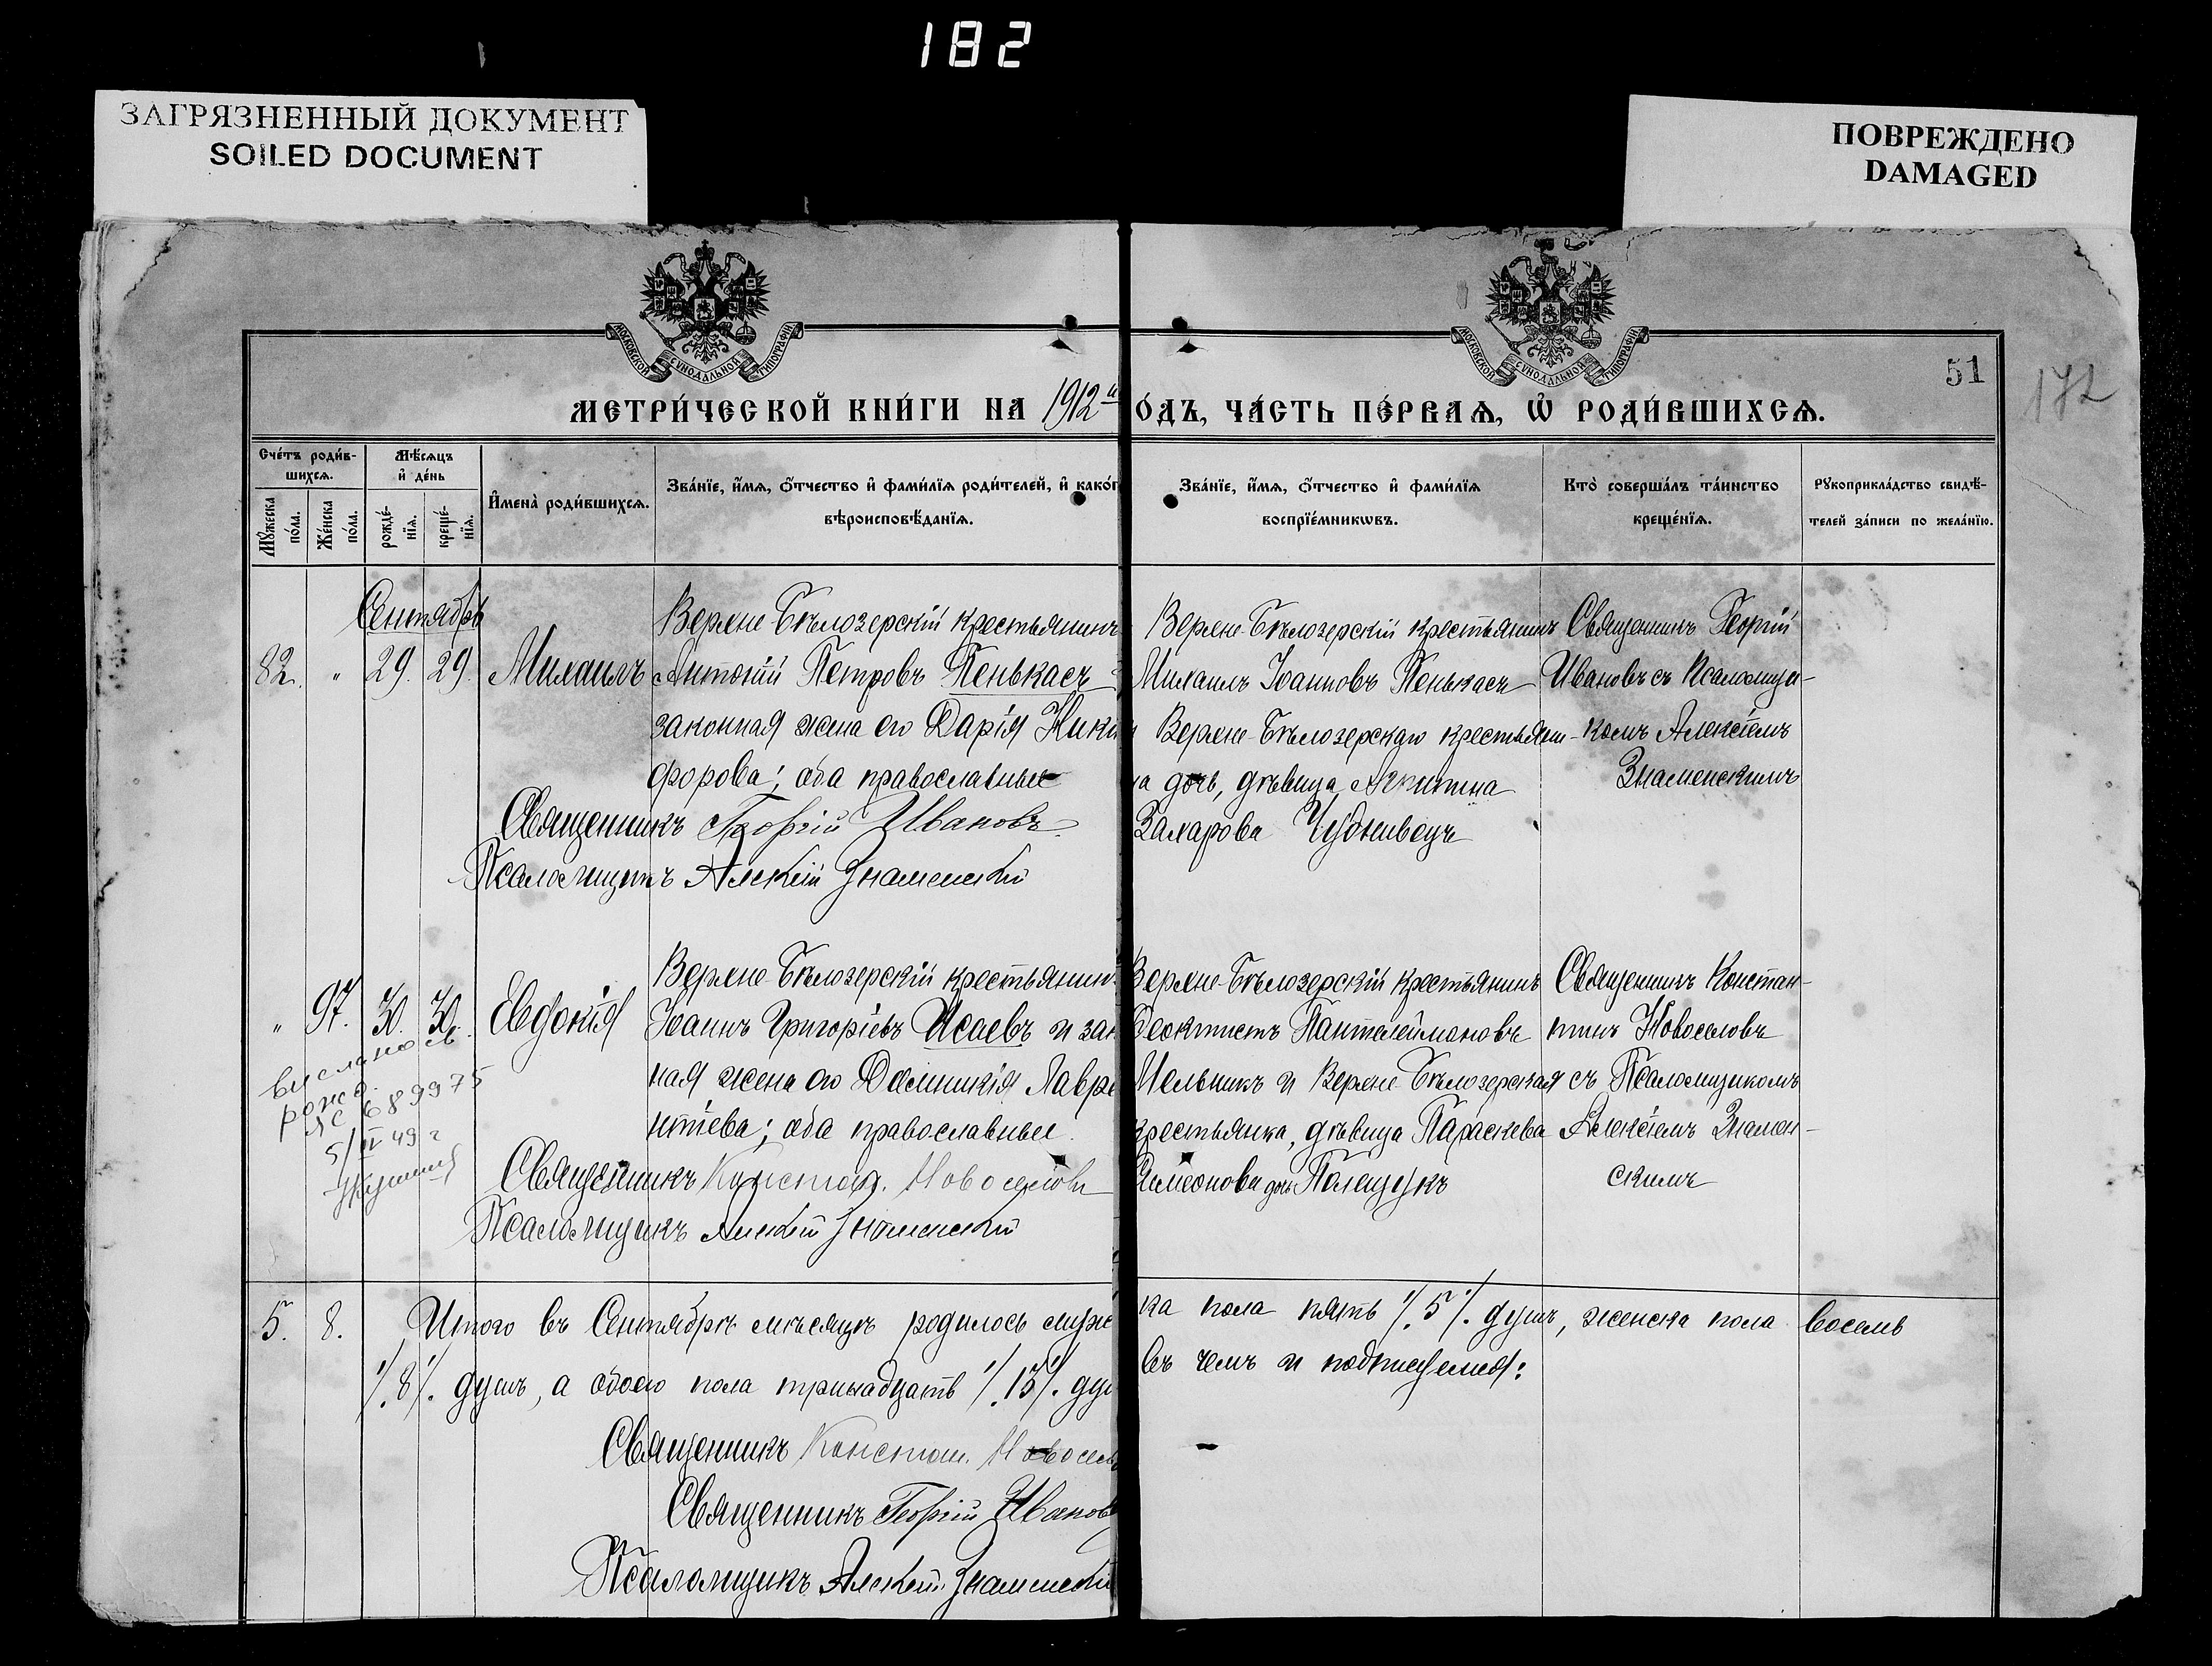 182
ЗАГРЯЗНЕННЫЙ ДОКУМЕНТ
SOILED DOCUMENT
ПОВРЕЖДЕНО
DAMAGED
МОСКОВСКОЙ СѴНОДАЛЬНОЙ ТИПОГРАФІИ
МОСКОВСКОЙ СѴНОДАЛЬНОЙ ТИПОГРАФІИ
51
172
МЕТРИ́ЧЕСКОЙ КНИ́ГИ НА 1912 й
О́ДЪ, ЧА́СТЬ ПЕ́РВАѦ, Ѡ҆ РОДИ́ВШИХСѦ.
Сче́тъ роди́в-
шихсѧ.
Мꙋ́жеска по́ла.
Же́нска по́ла.
Мѣ́сѧцъ
и҆ де́нь
рожде́-
нїѧ.
креще́-
нїѧ.
И҆мена̀ роди́вшихсѧ.
Зва́нїе, и҆́мѧ, ѻ҆́тчество и҆ фами́лїѧ роди́телей, и҆ како́г
вѣроисповѣ́данїѧ.
Зва́нїе, и҆́мѧ, ѻ҆́тчество и҆ фами́лїѧ
воспрїе́мникѡвъ.
Кто̀ соверша́лъ та́инство
креще́нїѧ.
Рꙋкоприкла́дство свидѣ́-
телей за́писи по жела́нїю.
Сентябрь
82. " 29. 29. Михаилъ
Верхне-Бѣлозерскій крестьянинъ
Антоній Петровъ Пенькасъ
законная жена его Дарія Ники
форова; оба православные
Священникъ Георгій Ивановъ
Псаломщикъ Алексій Знаменскій
Верхне-Бѣлозерскій крестьянинъ
Михаилъ Іоанновъ Пенькасъ
и Верхне-Бѣлозерскаго крестьяни-
на дочь, дѣвица Акилина
Захарова Чудновецъ
Священникъ Георгій
Ивановъ съ Псаломщи-
комъ Алексіемъ
Знаменскимъ
" 97. 30. 30. Евдокія
Верхне-Бѣлозерскій крестьянин
Іоаннъ Григоріевъ Исаевъ и зак
ная жена его Домникія Лавре
нтіева; оба православные.
Священникъ Констан. Новоселовъ
Псаломщикъ Алексій Знаменскій
Верхне-Бѣлозерскій крестьянинъ
Феоктистъ Пантелеймоновъ
Мельникъ и Верхне-Бѣлозерская
крестьянка, дѣвица Параскева
Симеонова дочь Полещукъ
Священникъ Констан-
тинъ Новоселовъ
съ Псаломщикомъ
Алексіемъ Знамен-
скимъ
выслано св.
рожд.
ЛС 689975
5/II 49 г
5. 8. Итого въ Сентябрѣ мѣсяцѣ родилось муже
ска пола пять ·/.5·/. душъ, женска пола восемь
·/.8·/. душъ, а обоего пола тринадцать ·/.13·/. душ
въ чемъ и подписуемся:
Священникъ Констан. Новосел
Священникъ Георгій Иванов
Псаломщикъ Алексій Знаменскій